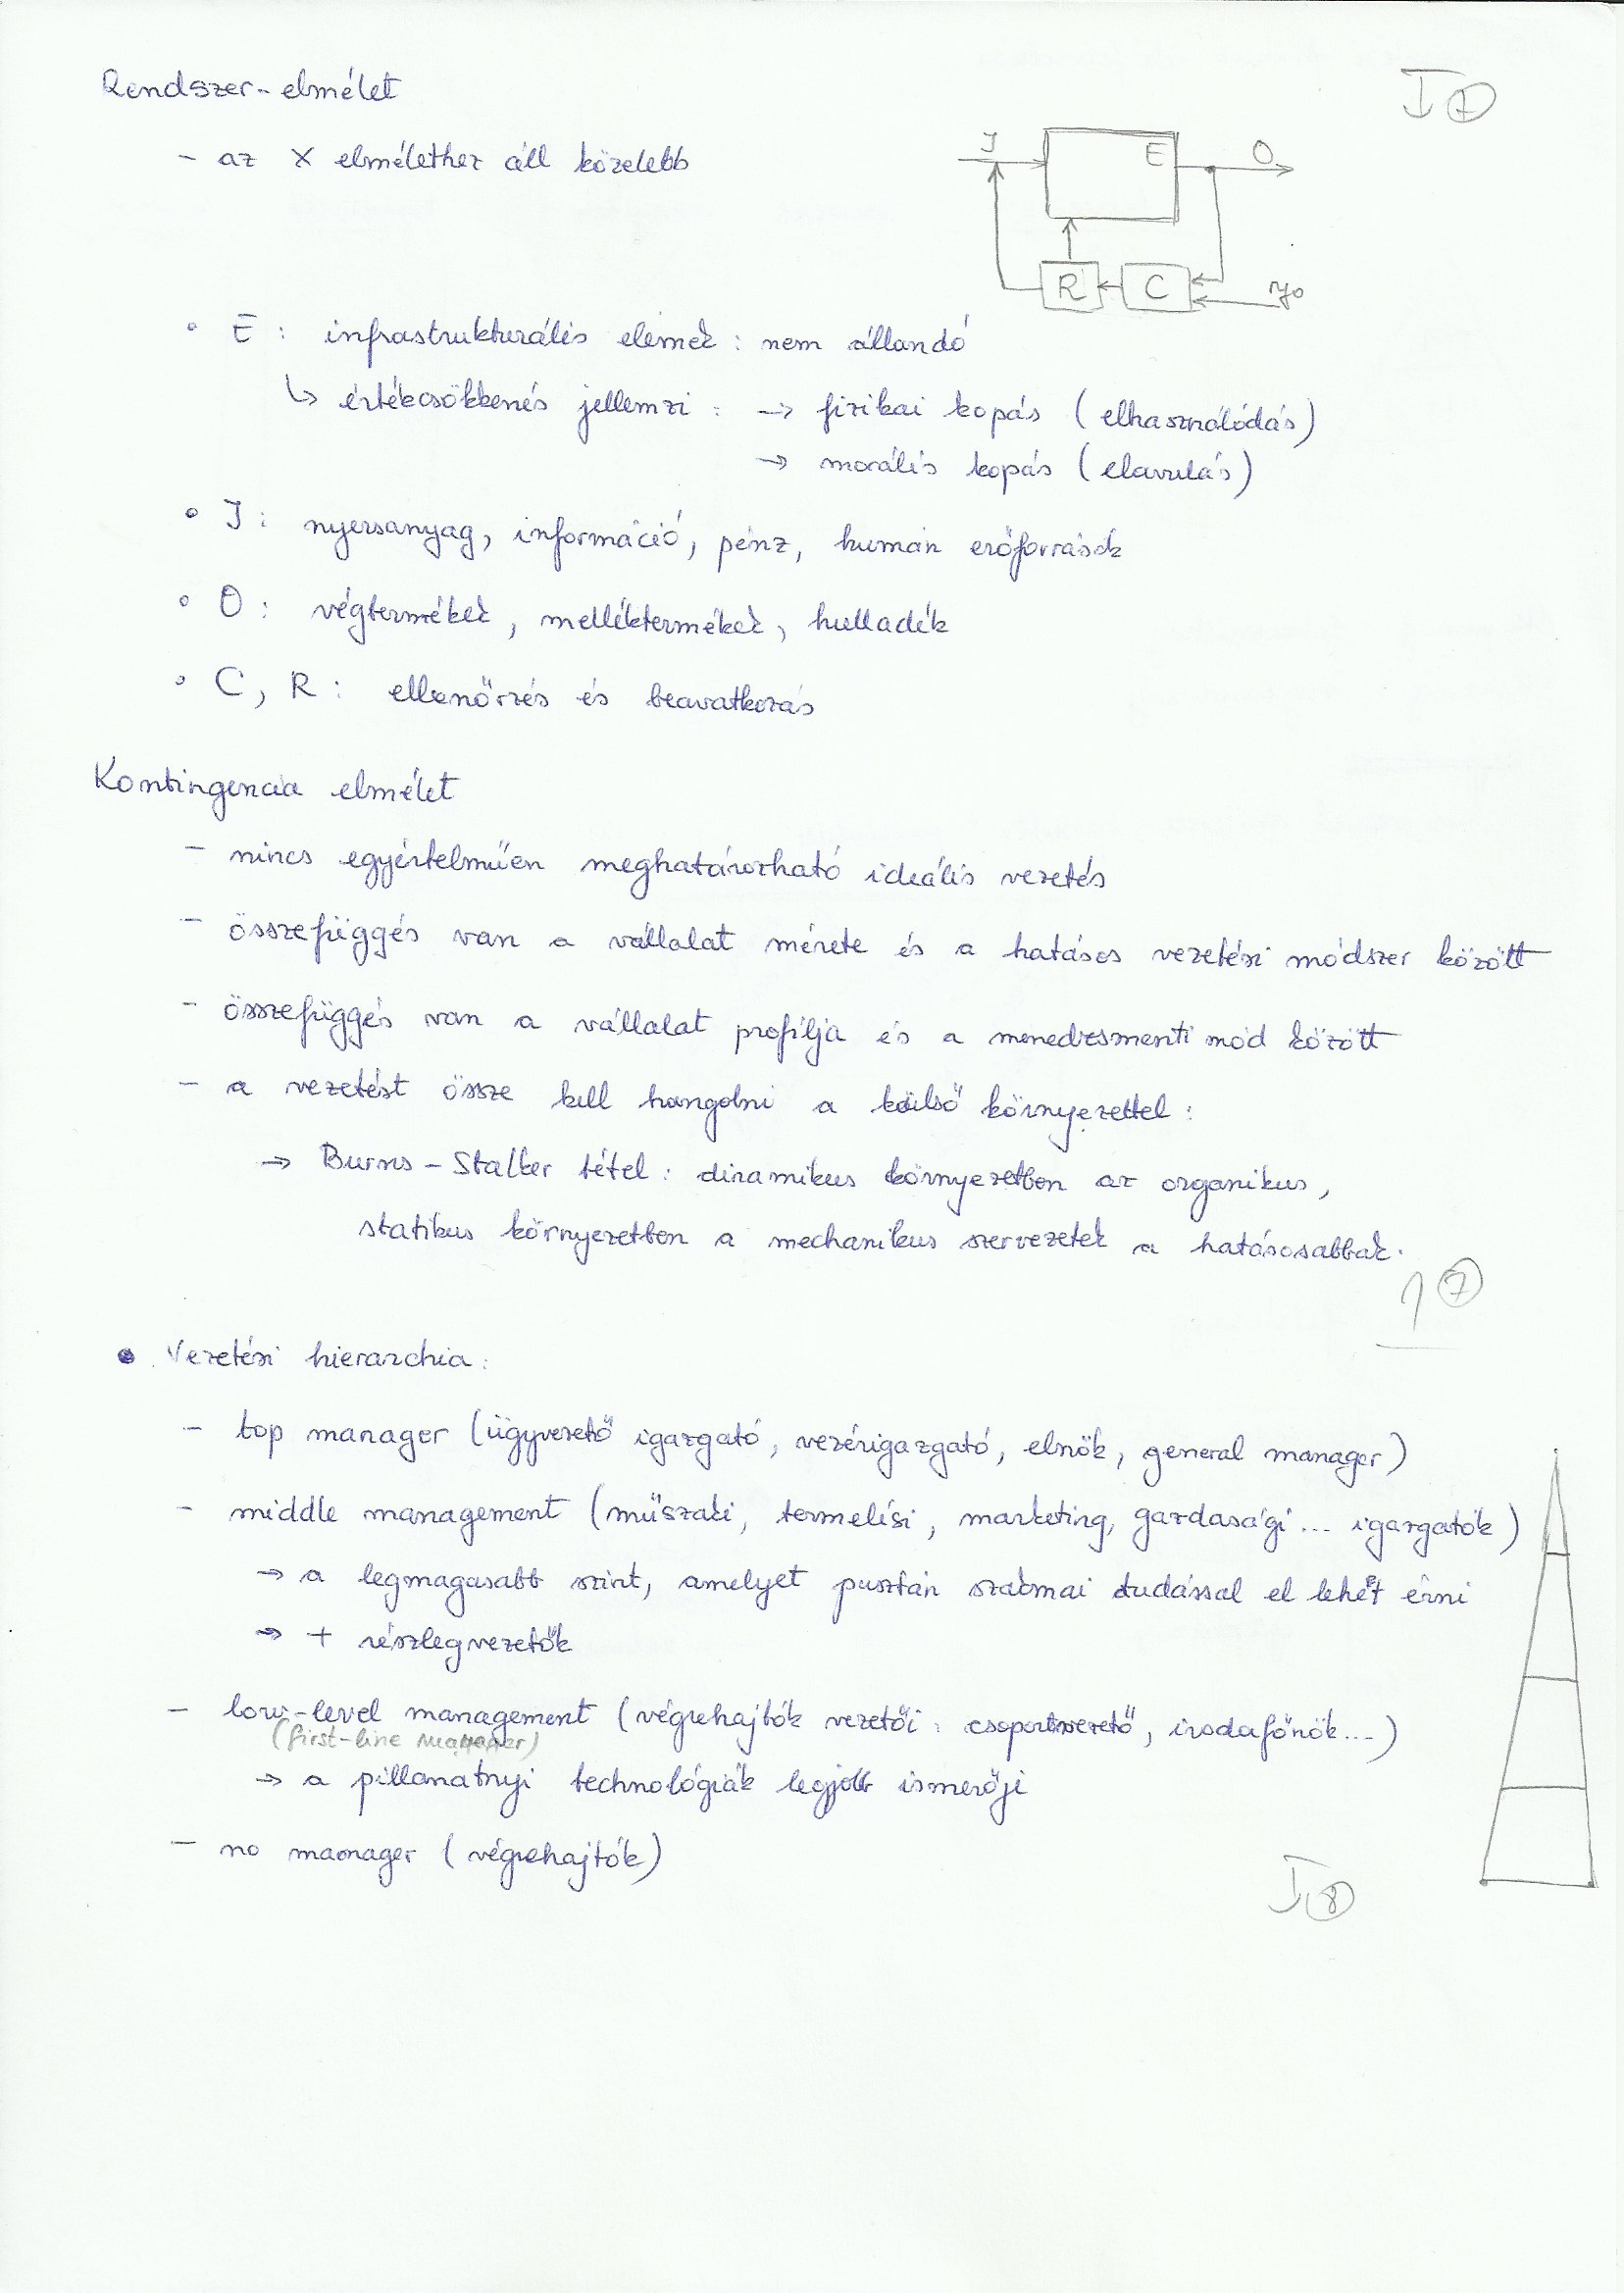 Rendszer-elmélet
I 7
- az X elmélethez áll közelebb
I E O
R C y0
• E : infrastrukturális elemek : nem állandó
↳ értékcsökkenés jellemzi : → fizikai kopás (elhasználódás)
→ morális kopás (elavulás)
• I : nyersanyag, információ, pénz, humán erőforrások
• O : végtermékek, melléktermékek, hulladék
• C, R : ellenőrzés és beavatkozás
Kontingencia elmélet
- nincs egyértelműen meghatározható ideális vezetés
- összefüggés van a vállalat mérete és a hatásos vezetési módszer között
- összefüggés van a vállalat profilja és a menedzsmenti mód között
- a vezetést össze kell hangolni a külső környezettel :
→ Burns-Stalker tétel : dinamikus környezetben az organikus,
statikus környezetben a mechanikus szervezetek a hatásosabbak.
1 7
• Vezetési hierarchia :
- top manager (ügyvezető igazgató, vezérigazgató, elnök, general manager)
- middle management (műszaki, termelési, marketing, gazdasági ... igazgatók)
→ a legmagasabb szint, amelyet pusztán szakmai tudással el lehet érni
→ + részlegvezetők
- low-level management (végrehajtók vezetői : csoportvezető, irodafőnök ...)
(first-line manager)
→ a pillanatnyi technológiák legjobb ismerői
- no manager (végrehajtók)
I 8